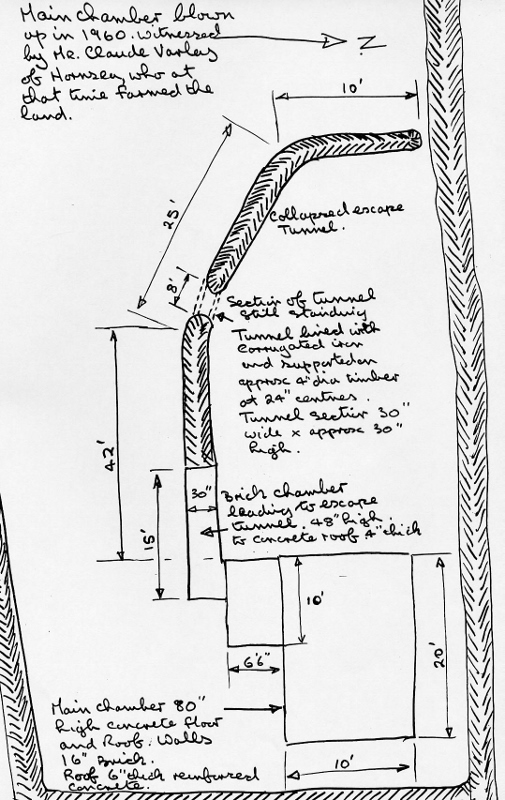 Main chamber blown
up in 1960. witnessed
by Mr. Claude Varley
of Hornsea, who at
that time farmed the
land.
N
10'
25'
Collapsed escape
Tunnel.
8'
Section of tunnel
still standing
Tunnel lined with
corrugated iron
and supported on
approx 4" dia timber
at 24" centres.
Tunnel section 30"
wide x approx 30"
high.
42'
30"
Brick chamber
leading to escape
tunnel. 48" high.
to concrete roof 4" thick
15'
10'
20'
6'6"
Main chamber 80"
high concrete floor
and Roof. Walls
16" Brick.
Roof 6" thick reinforced
concrete.
10'